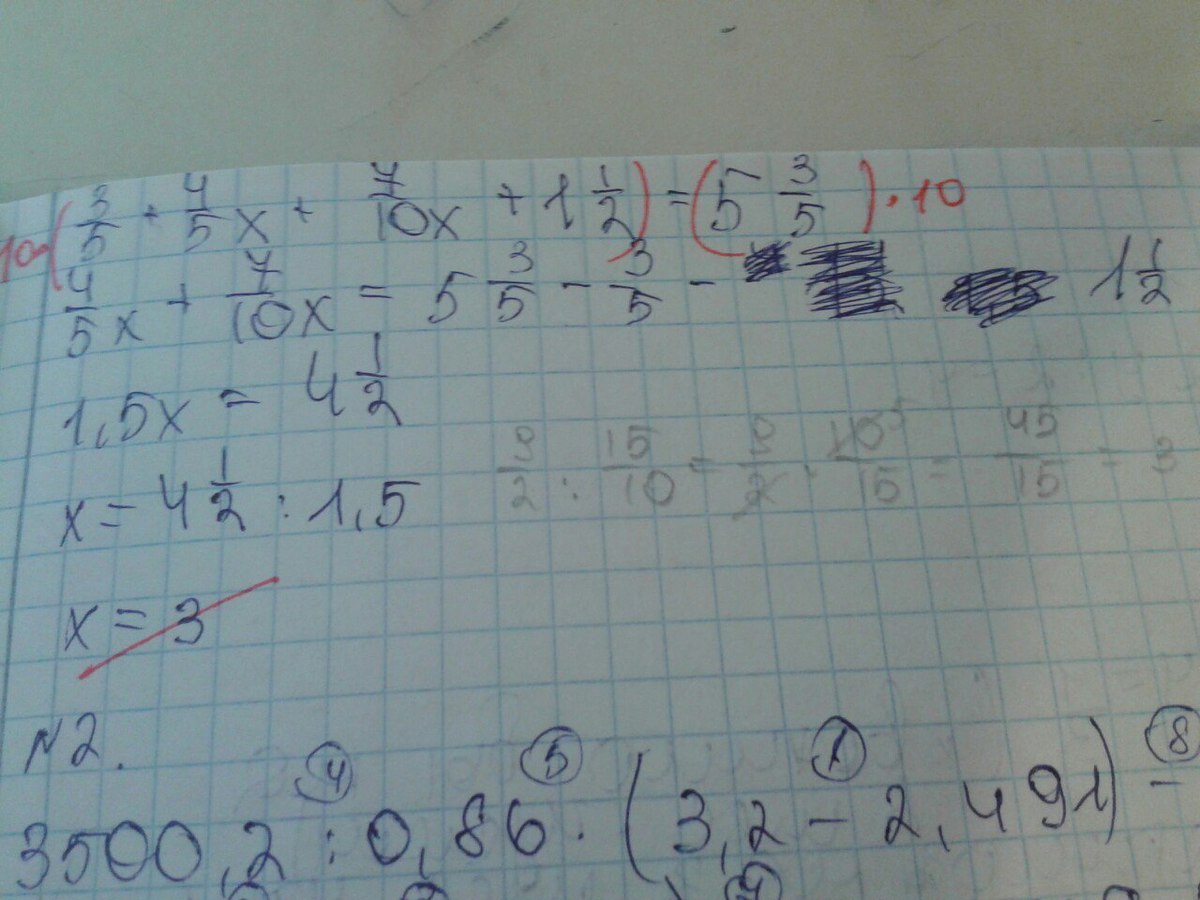 10(3/5 + 4/5x + 7/10x + 1 1/2) = (5 3/5) · 10
4/5x + 7/10x = 5 3/5 - 3/5 - 1 1/2
1,5x = 4 1/2
x = 4 1/2 : 1,5
9/2 : 15/10 = 9/2 · 10⁵/15 = 45/15 = 3
x = 3
N2.
4 5 1 8
3500,2 : 0,86 · (3,2 - 2,491) -